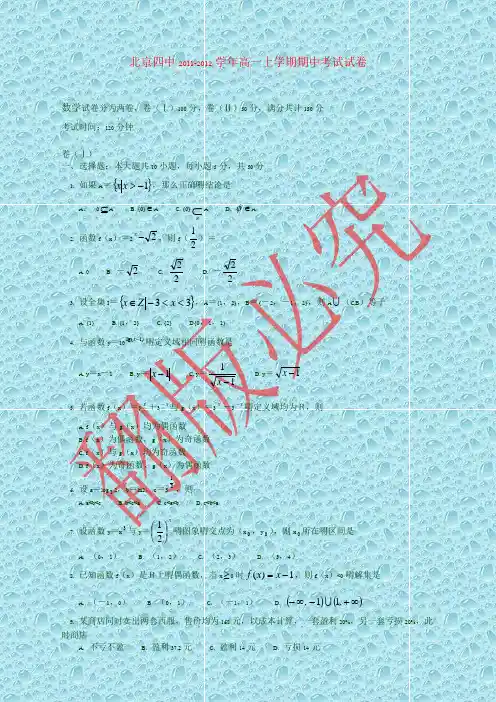 北京四中2011-2012学年高一上学期期中考试试卷
数学试卷分为两卷，卷（Ⅰ）100分，卷（Ⅱ）50分，满分共计150分
考试时间：120分钟
卷（Ⅰ）
一、选择题：本大题共10小题，每小题5分，共50分
1. 如果A={x|x>-1}，那么正确的结论是
A. 0⊆A B. {0}∈A C. {0} A D. ∅∈A
2. 函数f（x）=2^x-√2，则f（1/2）=
A. 0 B. -√2 C. √2/2 D. -√2/2
3. 设全集I={x∈Z|-3<x<3}，A={1，2}，B={-2，-1，2}，则A∪（CIB）等于
A. {1} B. {1，2} C. {2} D. {0，1，2}
4. 与函数y=10^lg(x-1)的定义域相同的函数是
A. y=x-1 B. y=|x-1| C. y=1/√(x-1) D. y=√(x-1)
5. 若函数f（x）=3^x+3^-x与g（x）=3^x-3^-x的定义域均为R，则
A. f（x）与g（x）均为偶函数
B. f（x）为偶函数，g（x）为奇函数
C. f（x）与g（x）均为奇函数
D. f（x）为奇函数，g（x）为偶函数
6. 设a=log₃2，b=ln2，c= 则
A. a<b<c B. b<c<a C. c<a<b D. c<b<a
7. 设函数y=x³与y=(1/2)^x的图象的交点为（x₀，y₀），则x₀所在的区间是
A. （0，1） B. （1，2） C. （2，3） D. （3，4）
8. 已知函数f（x）是R上的偶函数，当x≥0时f(x)=x-1，则f（x）<0的解集是
A. （-1，0） B. （0，1） C. （-1，1） D. (-∞,-1)∪(1,+∞)
9. 某商店同时卖出两套西服，售价均为168元，以成本计算，一套盈利20%，另一套亏损20%，此
时商店
A. 不亏不盈 B. 盈利37.2元 C. 盈利14元 D. 亏损14元
翻版必究